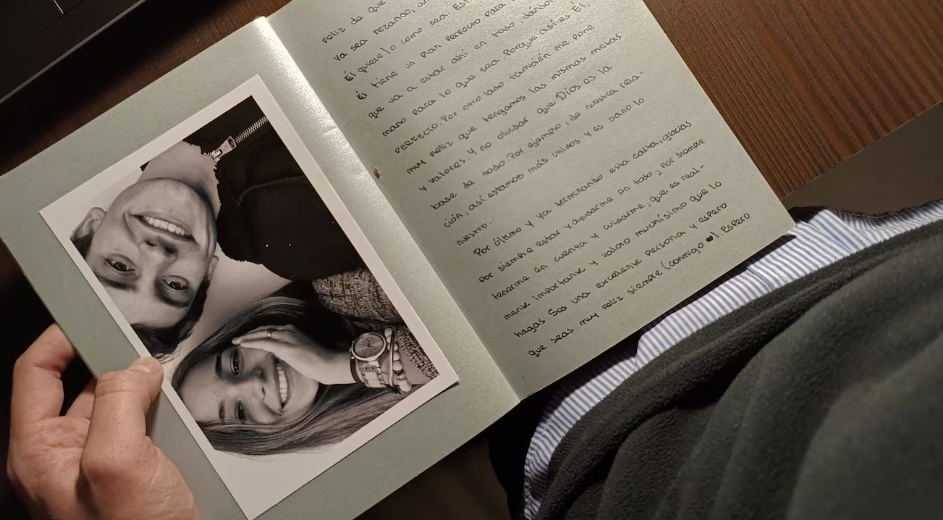 feliz de que
Ya sea rezando, o
Él quiere lo como sea. Él
Él tiene un plan perfecto para
que va a estar ahí en todo dándon
mano para lo que sea. Porque así es Él.
PERFECTO. Por otro lado también me pone
muy feliz que tengamos las mismas metas
y valores. Y no olvidar que Dios es la
base de todo. Por ejemplo, de nuestra rela-
ción, así estamos más unidos y es sano lo
nuestro.
Por último y ya terminando esta carta, gracias
por siempre estar y apoyarme en todo, por siempre
tenerme en cuenta y avisarme, que es real-
mente importante y valoro muchísimo que lo
hagas. Sos una excelente persona y espero
que seas muy feliz siempre (conmigo). Espero